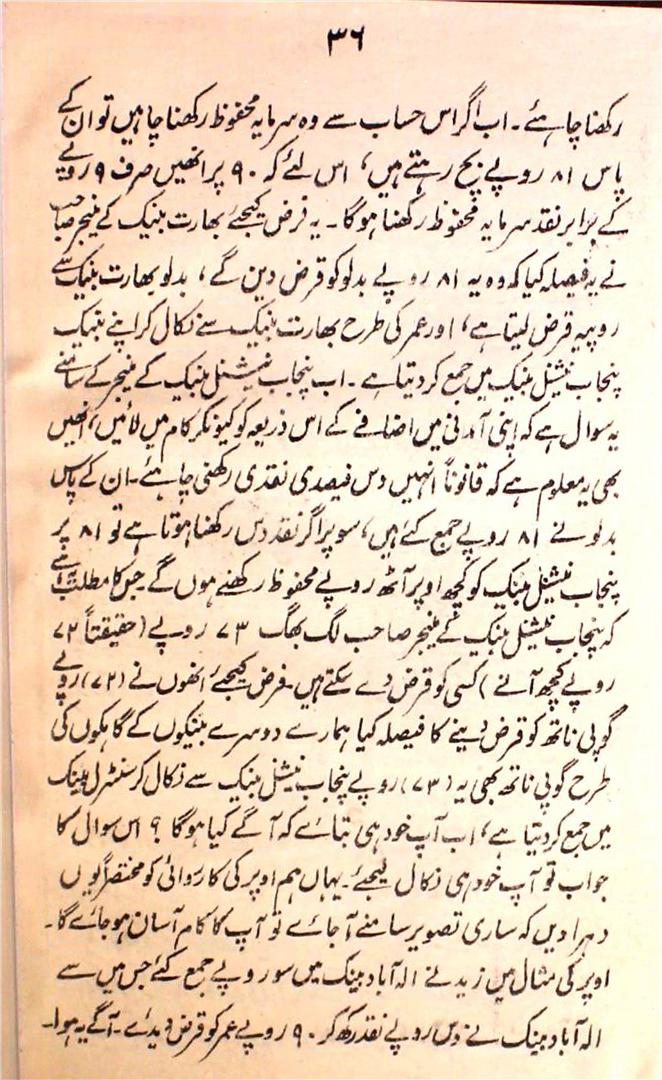 ۳۶
رکھنا چاہئے۔ اب اگر اس حساب سے وہ سرمایہ محفوظ رکھنا چاہیں تو ان کے
پاس ۸۱ روپے بچ رہتے ہیں، اس لئے کہ ۹۰ پر انھیں صرف ۹ روپے
کے برابر نقد سرمایہ محفوظ رکھنا ہوگا۔ یہ فرض کیجئے بھارت بینک کے منیجر صاحب
نے یہ فیصلہ کیا کہ وہ یہ ۸۱ روپے بدلو کو قرض دیں گے، بدلو بھارت بینک سے
روپیہ قرض لیتا ہے، اور عمر کی طرح بھارت بینک سے نکال کر اپنے بینک
پنجاب نیشنل بینک میں جمع کر دیتا ہے۔ اب پنجاب نیشنل بینک کے منیجر کے سامنے
یہ سوال ہے کہ اپنی آمدنی میں اضافے کے اس ذریعہ کو کیونکر کام میں لائیں، انھیں
بھی یہ معلوم ہے کہ قانوناً انہیں دس فیصدی نقدی رکھنی چاہئے۔ ان کے پاس
بدلو نے ۸۱ روپے جمع کئے ہیں، سو پر اگر نقد دس رکھنا ہوتا ہے تو ۸۱ پر
پنجاب نیشنل بینک کو کچھ اوپر آٹھ روپے محفوظ رکھنے ہوں گے۔ جس کا مطلب یہ ہے
کہ پنجاب نیشنل بینک کے منیجر صاحب لگ بھگ ۷۳ روپے (حقیقتاً ۷۲
روپے کچھ آنے) کسی کو قرض دے سکتے ہیں۔ فرض کیجئے انھوں نے (۷۳) روپے
گوپی ناتھ کو قرض دینے کا فیصلہ کیا ہمارے دوسرے بینکوں کے گاہکوں کی
طرح گوپی ناتھ بھی یہ (۷۳) روپے پنجاب نیشنل بینک سے نکال کر سنٹرل بینک
میں جمع کر دیتا ہے، اب آپ خود ہی بتائے کہ آگے کیا ہوگا؟ اس سوال کا
جواب تو آپ خود ہی نکال لیجئے۔ یہاں ہم اوپر کی کارروائی کو مختصراً یوں
دہرا دیں کہ ساری تصویر سامنے آجائے تو آپ کا کام آسان ہو جائے گا۔
اوپر کی مثال میں زید نے الہ آباد بینک میں سو روپے جمع کئے جس میں سے
الہ آباد بینک نے دس روپے نقد رکھ کر ۹۰ روپے عمر کو قرض دیدئے۔ آگے یہ ہوا۔